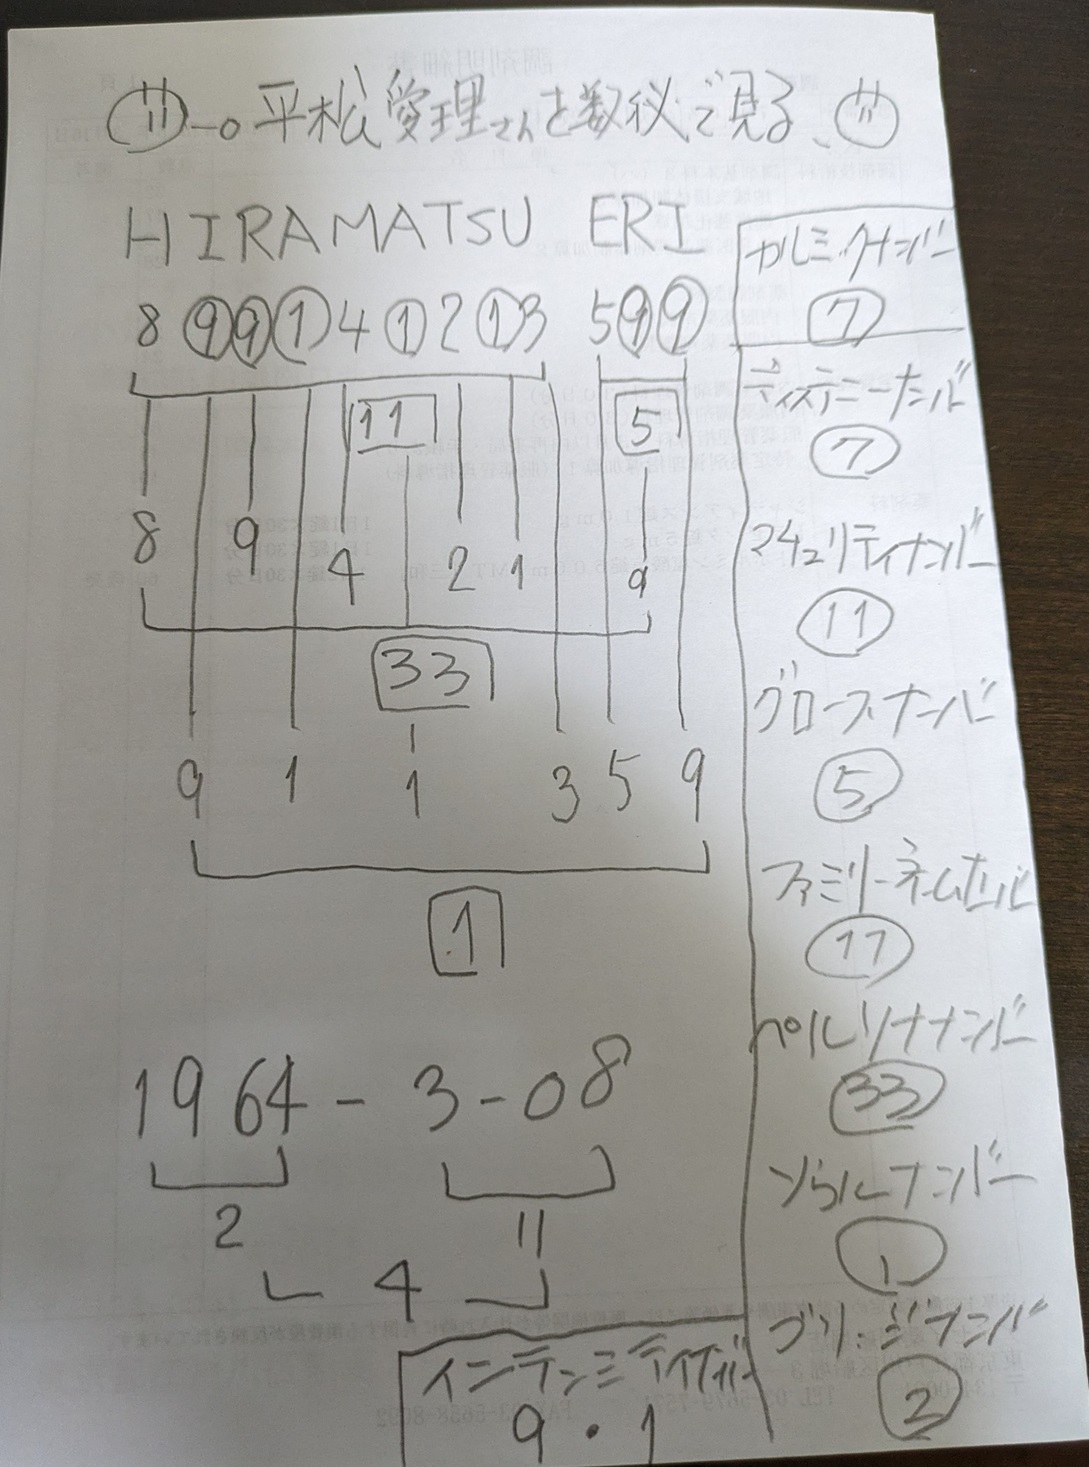 平松愛理さんを数秘で見る、
HIRAMATSU ERI
8 9 9 1 4 1 2 1 3 5 9 9
11 5
8 9 4 2 1 9
33
9 1 1 3 5 9
1
1964-3-08
2 11
4
インテンシティナンバー
9・1
カルミックナンバー
7
ディスティニーナンバー
7
マチュリティナンバー
11
グロースナンバー
5
ファミリーネームナンバー
11
ペルソナナンバー
33
ソウルナンバー
1
ブリッジナンバー
2